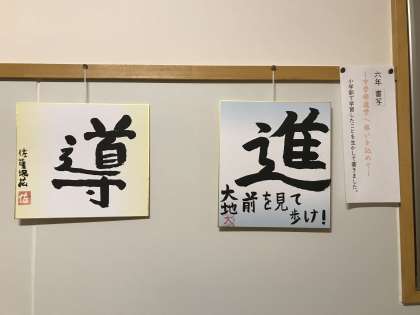 六年 書写
小学部で学習したことを生かして書きました。
進
前を見て
歩け！
大地
導